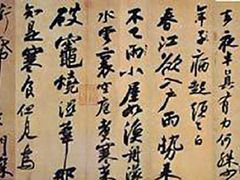 夜半真有力何殊少
年子病起頭已白
春江欲入戶雨勢來
不已雨小屋如漁舟
水雲裏空庖煮寒菜
破竈燒濕葦那
知是寒食但見烏